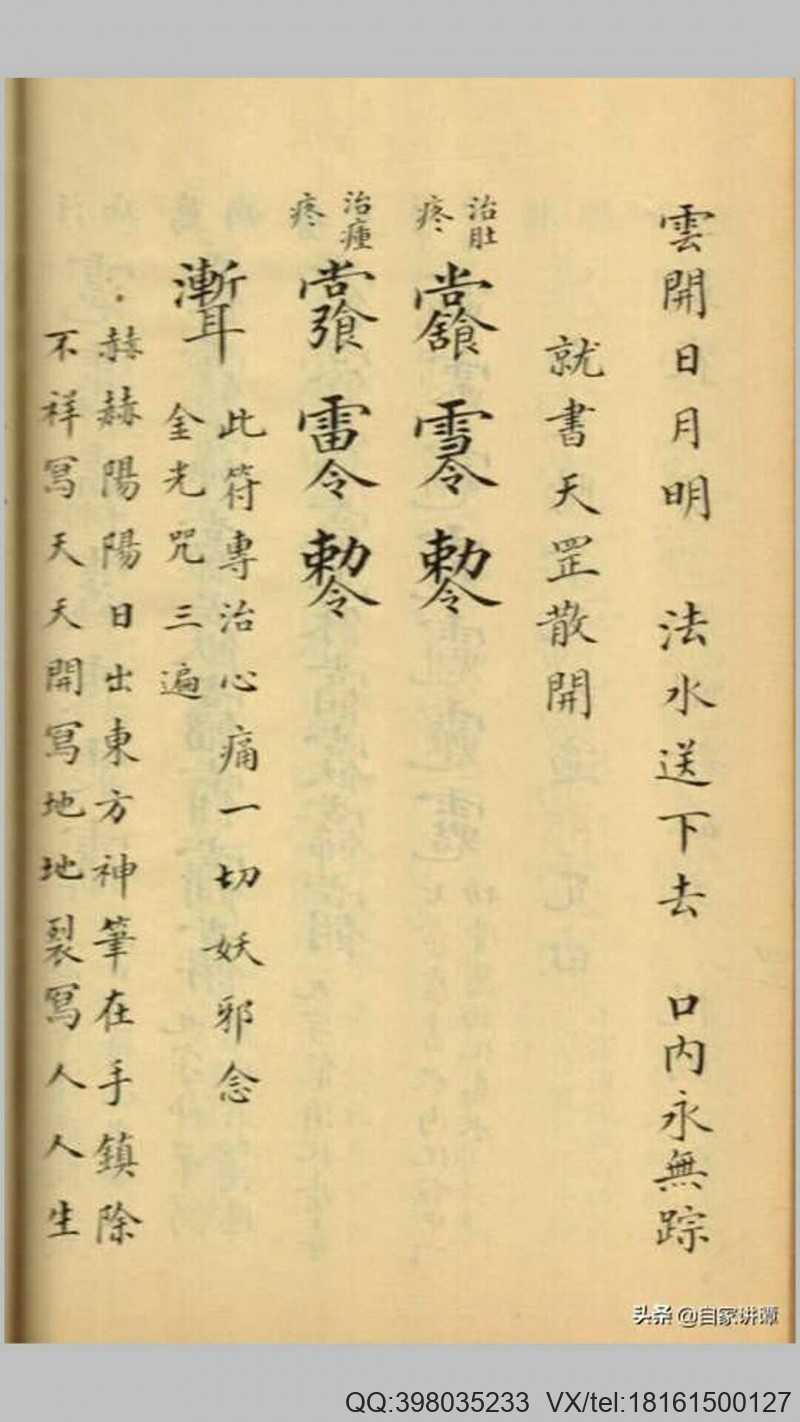 雲開日月明　法水送下去　口內永無踪
就書天罡散開
治肚疼
治瘇疼
此符專治心痛一切妖邪念
金光咒三遍
赫赫陽陽日出東方神筆在手鎮除
不祥寫天天開寫地地裂寫人人生
头条 @自家讲谭
QQ:398035233 VX/tel:18161500127